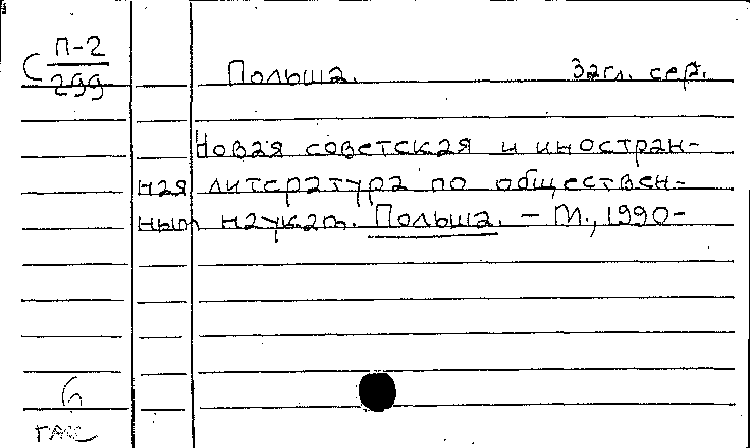 С П-2
299
Польша. Загл. сер.
Новая советская и иностран-
ная литература по обществен-
ным наукам. Польша. – М., 1990-